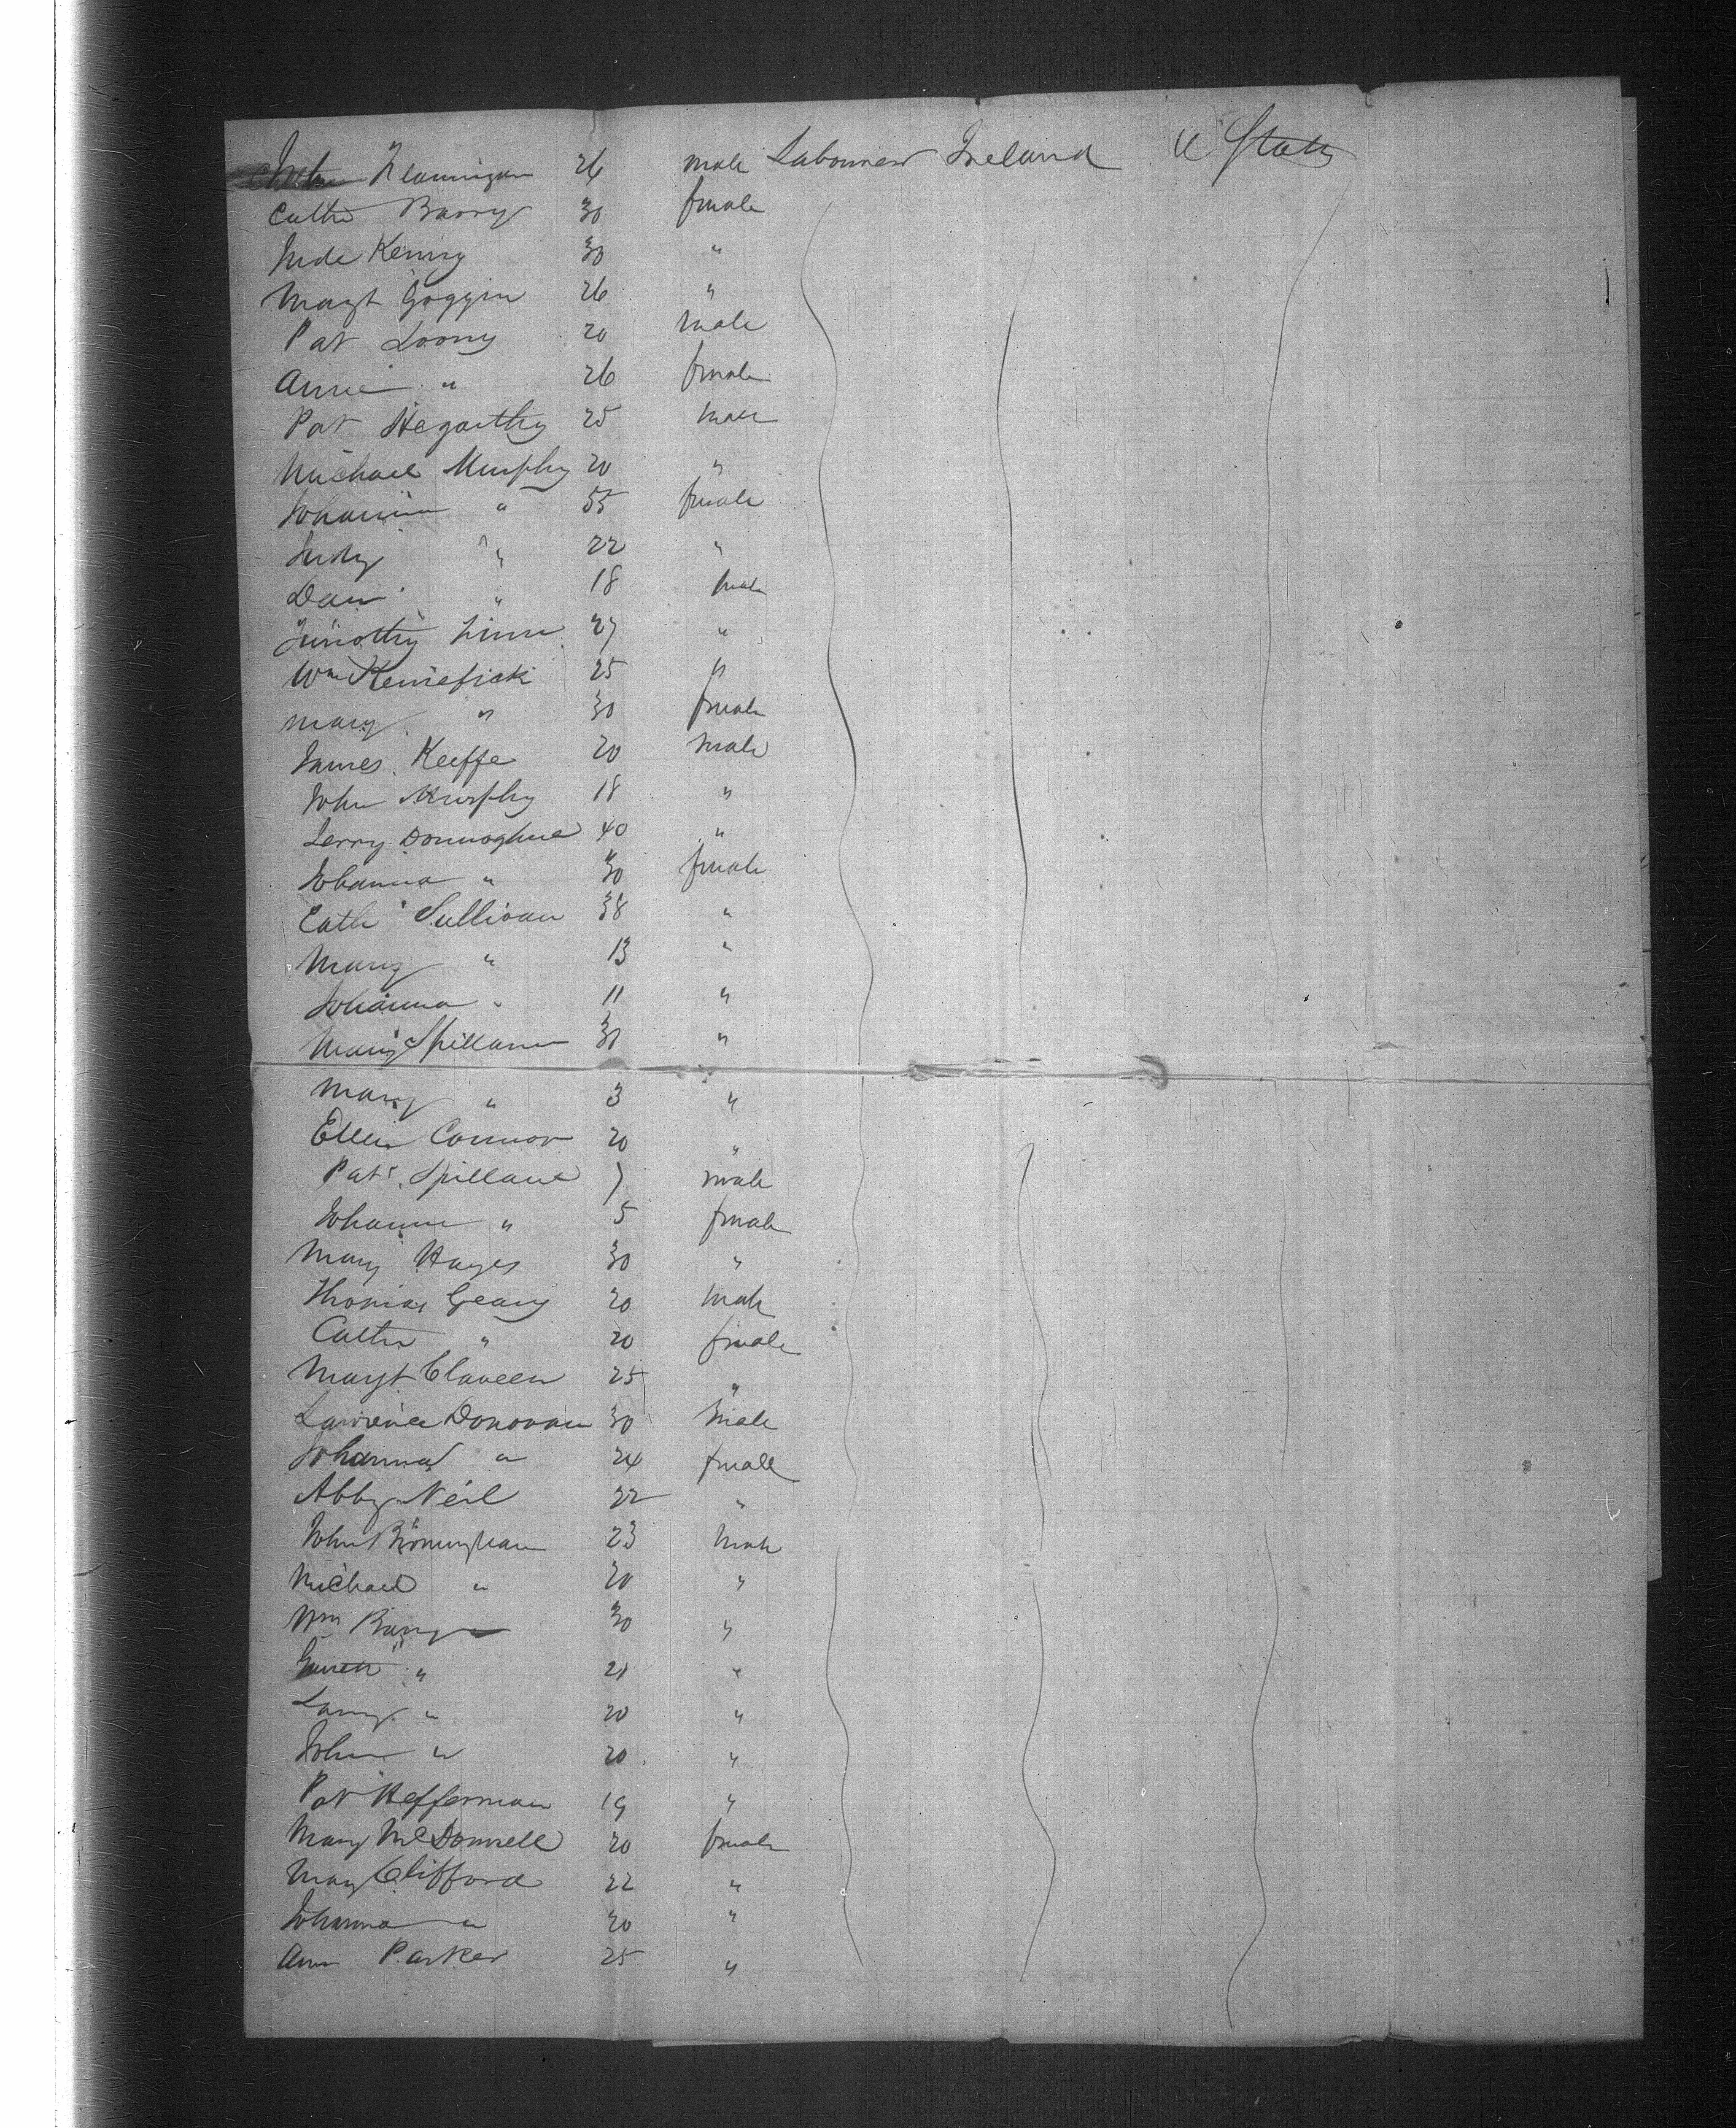 John Flannigan 26 male Labourer Ireland U States
Cathe Barry 30 female
Jude Kenny 30 "
Margt Goggin 26 "
Pat Loony 20 male
Annie " 26 female
Pat Hegarthy 25 male
Michael Murphy 20 "
Johanna " 55 female
Judy " 22 "
Dan " 18 male
Timothy Linn 27 "
Wm Kenefick 25 "
Mary " 30 female
James Keeffe 20 male
John Murphy 18 "
Jerry Donnoghue 40 "
Johanna " 30 female
Cath Sullivan 38 "
Mary " 13 "
Johanna " 11 "
Mary Spillane 30 "
Mary " 3 "
Ellen Connor 20 "
Patk Spillane 7 male
Johanna " 5 female
Mary Hayes 30 "
Thomas Geary 20 male
Cathe " 20 female
Margt 25 "
Lawrence Donovan 30 male
Johanna " 24 female
Abby Neil 22 "
John Birmingham 23 male
Michael " 20 "
Wm Barry 30 "
Garrett " 21 "
Larry " 20 "
John " 20 "
Pat Hefferman 19 "
Mary McDonnell 20 female
Mary Clifford 22 "
Johanna " 20 "
Ann Parker 25 "